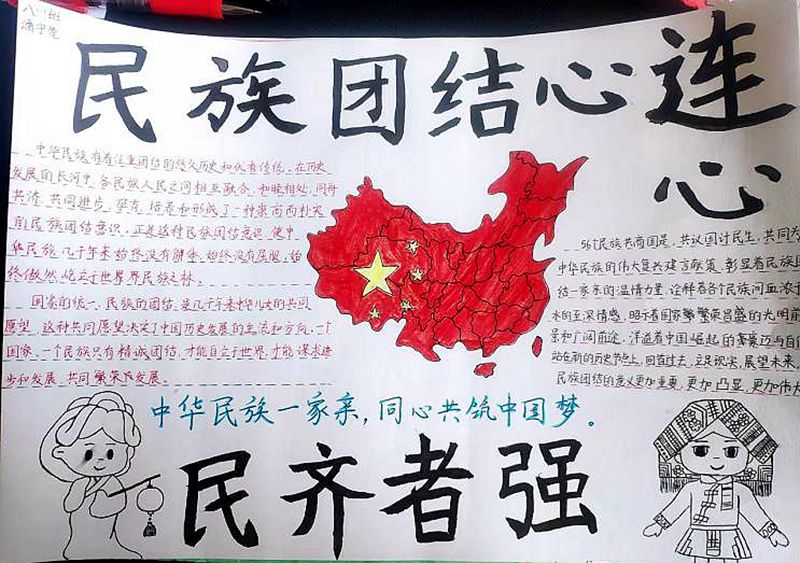 八(1)班
民族团结心连
心
中华民族有着注重团结的悠久历史和优者传统。在历史
发展的长河中,各民族人民之间相互融合、和睦相处,同舟
共济,共同进步,孕育、培养和形成了一种崇尚而朴实
的民族团结意识,正是这种民族团结意识,使中
华民族几千年来始终没有解体,始终没有屈服,始
终傲然屹立于世界民族之林。
国家的统一、民族的团结,是几千年来中华儿女的共同
愿望,这种共同愿望决定了中国历史发展的主流和方向。一个
国家、一个民族只有精诚团结,才能自立于世界,才能谋求进
步和发展,共同繁荣及发展。
56个民族共商国是,共议国计民生,共同为
中华民族的伟大复兴建言献策,彰显着民族团
结一家亲的温情力量,诠释着各个民族间血浓于
水的至深情感,昭示着国家繁荣昌盛的光明前
景和广阔前途,洋溢着中国崛起的豪景迈与自信
站在新的历史节点上,回首过去,立足现实,展望未来,
民族团结的意义更加重要,更加凸显,更加伟大
中华民族一家亲,同心共筑中国梦。
民齐者强